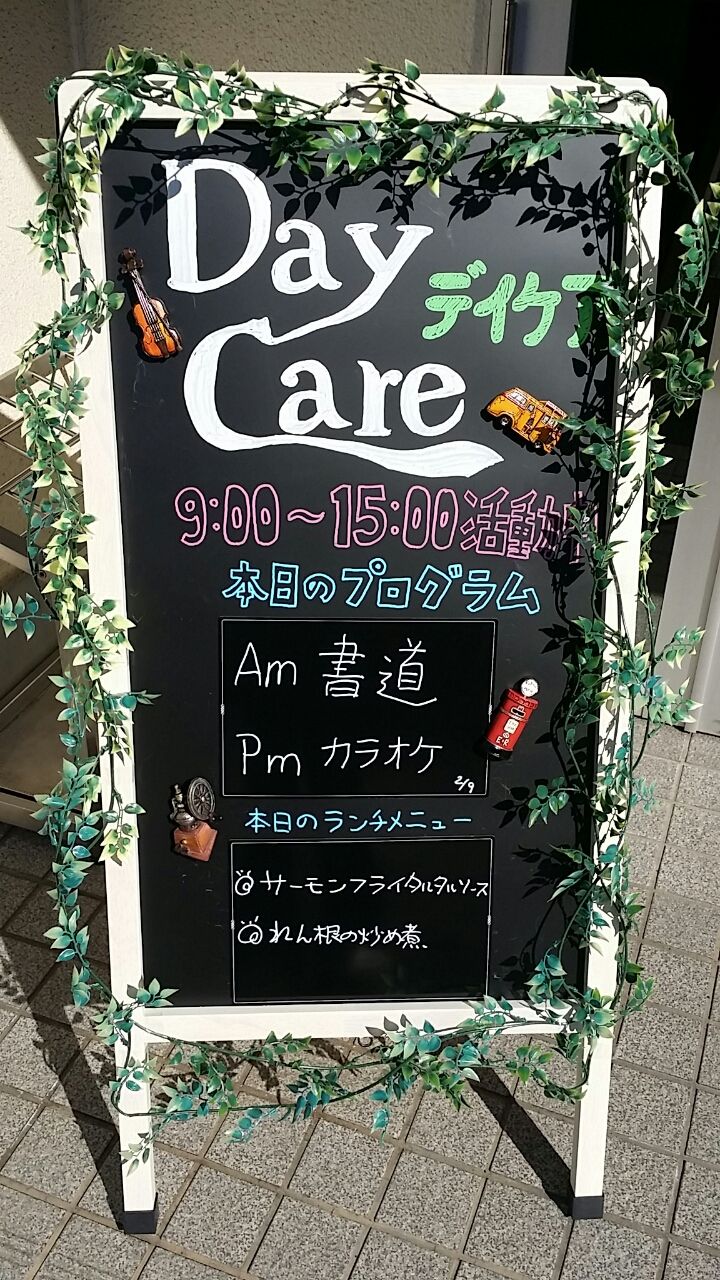 Day
デイケア
Care
9:00～15:00 活動中
本日のプログラム
Am 書道
Pm カラオケ
2/9
本日のランチメニュー
サーモンフライタルタルソース
れん根の炒め煮
E R